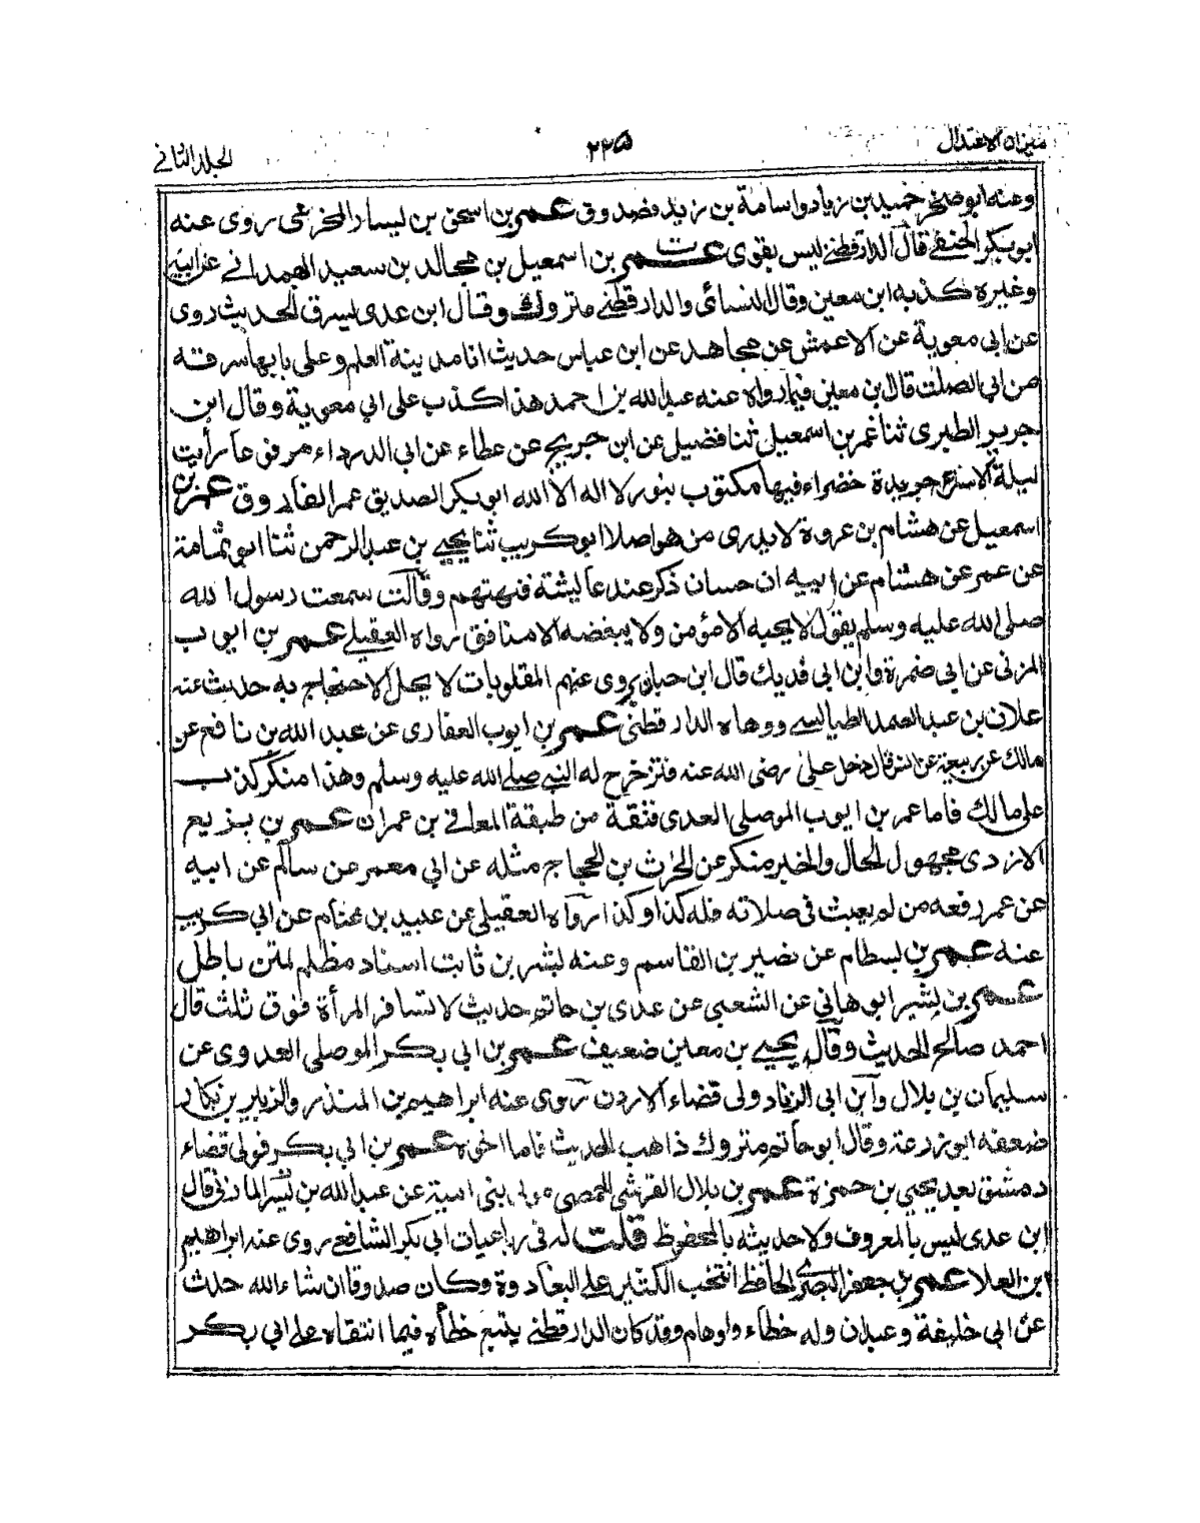 ميزان الاعتدال
٢٢٥
الجلد الثاني
وعنه ابو صخر حميد بن زياد واسامة بن زيد فصدوق عمر بن اسحق بن يسار المخرمي روى عنه
ابو بكر الحنفي قال الدارقطني ليس بقوى عمر بن اسمعيل بن مجالد بن سعيد الهمداني عن ابيه
وغيره كذبه ابن معين وقال النسائي والدارقطني متروك وقال ابن عدى يسرق الحديث روى
عن ابي معوية عن الاعمش عن مجاهد عن ابن عباس حديث انا مدينة العلم وعلى بابها سرقته
من ابي الصلت قال بن معين فيما رواه عنه عبد الله بن احمد هذا كذب على ابي معوية وقال ابن
جرير الطبرى ثنا عمر بن اسمعيل ثنا فضيل عن ابن جريج عن عطاء عن ابي الدرداء مرفوعا رأيت
ليلة الاسرى جريدة خضراء فيها مكتوب بنور لا اله الا الله ابو بكر الصديق عمر الفاروق عمر بن
اسمعيل عن هشام بن عروة لا يدرى من هو اصلا ابو كريب ثنا يحيى بن عبد الرحمن ثنا ابو ثمامة
عن عمر عن هشام عن ابيه ان حسان ذكر عند عايشة فنهتهم وقالت سمعت رسول الله
صلى الله عليه وسلم يقول لا يحبه الا مؤمن ولا يبغضه الا منافق رواه العقيلي عمر بن ايوب
المزنى عن ابي ضمرة وابن ابي فديك قال ابن حبان يروى عنهم المقلوبات لا يحل الاحتجاج به حديث عنه
علان بن عبد الصمد الطيالسي ووهاه الدارقطنى عمر بن ايوب الغفارى عن عبد الله بن نافع عن
مالك عن ربيعة عن انس قال دخل على رضى الله عنه فتزحزح له النبي صلى الله عليه وسلم وهذا منكر كذب
على مالك فاما عمر بن ايوب الموصلى العبدى فثقة من طبقة المعافي بن عمران عمر بن بزيع
الازدى مجهول الحال والخبر منكر عن الحرث بن الحجاج مثله عن ابي معمر عن سالم عن ابيه
عن عمر رفعه من لم يعبث في صلاته فله كذا وكذا رواه العقيلي عن عبيد بن غنام عن ابي كريب
عنه عمر بن بسطام عن نصير بن القاسم وعنه بشر بن ثابت اسناد مظلم لمتن باطل
عمر بن بشير ابو هاني عن الشعبي عن عدى بن حاتم حديث لا تسافر المرأة فوق ثلث قال
احمد صالح الحديث وقال يحيى بن معين ضعيف عمر بن ابي بكر الموصلى العدوى عن
سليمان بن بلال وابن ابي الزناد ولى قضاء الاردن روى عنه ابراهيم بن المنذر والزبير بن بكار
ضعفه ابو زرعة وقال ابو حاتم متروك ذاهب الحديث فاما اخوه عمر بن ابي بكر فولى قضاء
دمشق بعد يحيى بن حمزة عمر بن بلال القرشي الحمصي مولى بنى امية عن عبد الله بن بسر المازنى قال
ابن عدى ليس بالمعروف ولا حديثه بالمحفوظ قلت له فى رباعيات ابي بكر الشافعي روى عنه ابراهيم
ابن العلا عمر بن جعفر البصرى الحافظ انتخب الكثير على البغاددة وكان صدوقا ان شاء الله حدث
عن ابي خليفة وعبدان وله خطاء واوهام وقد كان الدارقطنى يتتبع خطأه فيما انتقاه على ابي بكر